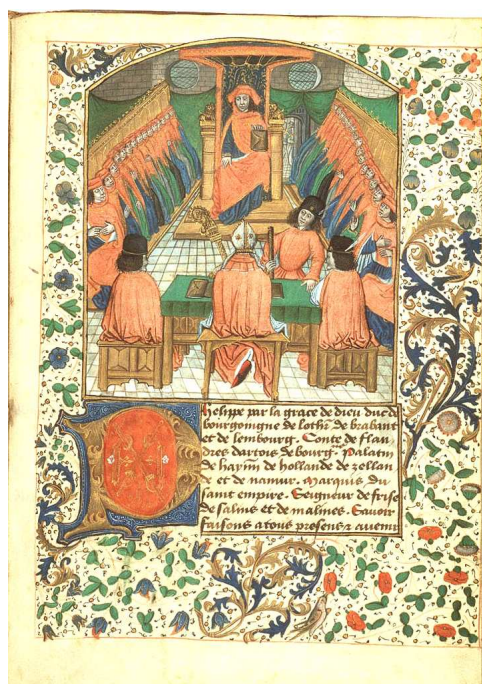 Phelippe par la grace de dieu duc de
bourgongne de lothr de brabant
et de lembourg. Conte de flan
dres dartois de bourg. palatin
de hayñ de hollande de zellan
de et de namur. Marquis du
saint empire. Seigneur de frise
de salins et de malines. Savoir
faisons a tous presens z avenir